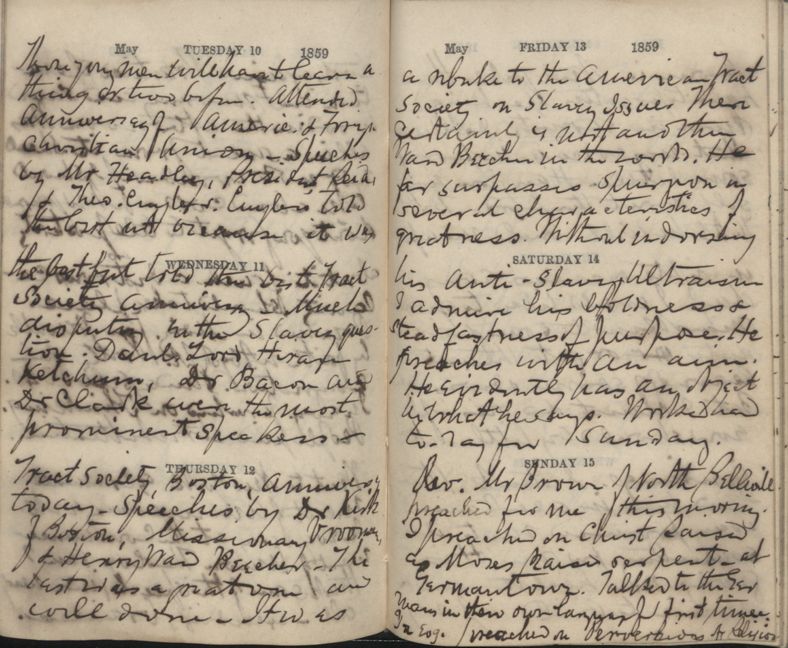 May TUESDAY 10 1859
those young men will have to learn a
thing or two before. Attended
Anniversary of Americ. & Foreign
Christian Union - Speeches
by Mr Headley, President
& Theo. told
the best not because it was
the best but told the best. Tract
WEDNESDAY 11
Society Anniversy - Much
disputing on the Slavery ques-
tion. Danl. Lord Hiram
Ketchum, Dr Bacon and
Dr Clark were the most
prominent speakers &
Tract Society Boston, Anniversy
THURSDAY 12
today - Speeches by Dr Kirk
of Boston, Missionary Vrooman,
& Henry Ward Beecher - The
last was a great one and
well done - It was
May FRIDAY 13 1859
a rebuke to the American Tract
Society on Slavery Issues There
certainly is not another
Ward Beecher in the world. He
far surpasses Spurgeon in
several characteristics of
greatness. Without indorsing
SATURDAY 14
his Anti-Slavery Ultraism
I admire his boldness &
steadfastness of purpose. He
preaches with an aim.
He evidently has an object
in what he says. Worked hard
to-day for Sunday.
SUNDAY 15
Rev. Mr Brown of North Belleville
preached for me this morning.
I preached on Christ Raised
as Moses Raised serpent - at
Germantown. Talked to the Ger
mans in their own language for first time.
In Eve. preached on Perversions of Religion